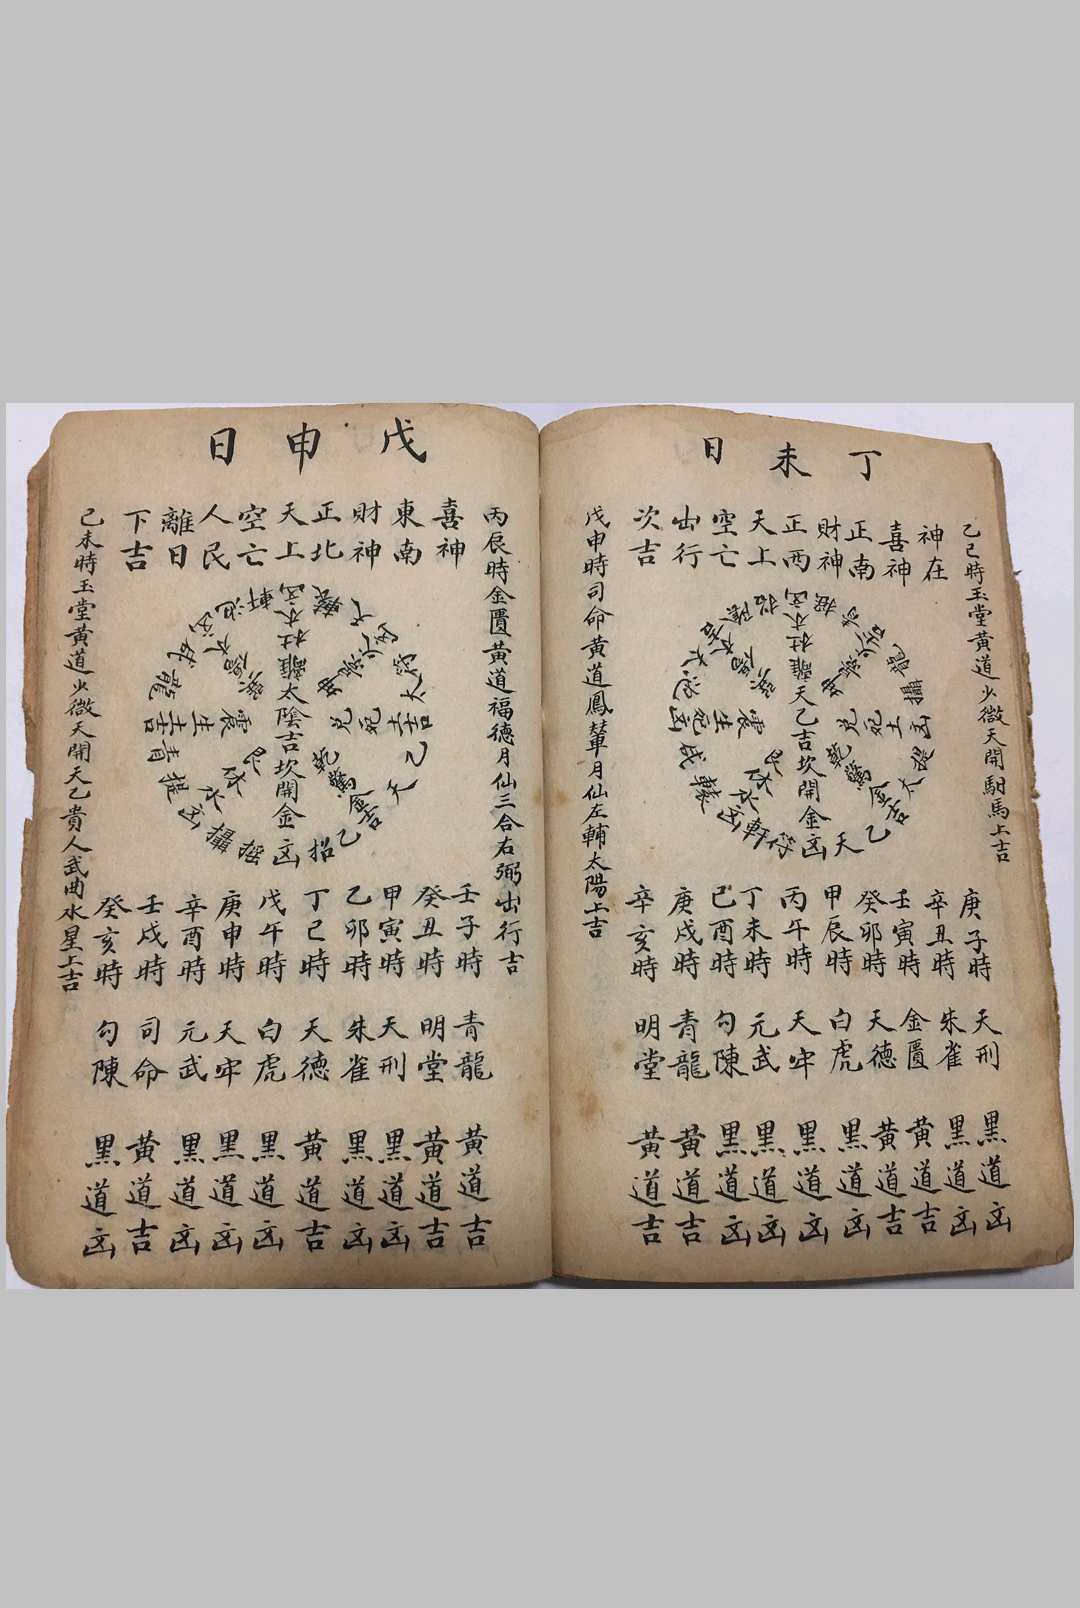 丁未日
乙巳時玉堂黃道少微天開馹馬上吉
神在
喜神
正南
財神
正西
天上
空亡
出行
次吉
戊申時司命黃道鳳輦月仙左輔太陽上吉
天乙吉坎開金凶
離杜木凶
兌死土凶
乾驚金吉
震生
艮休水凶
庚子時 天刑 黑道凶
辛丑時 朱雀 黑道凶
壬寅時 金匱 黃道吉
癸卯時 天德 黃道吉
甲辰時 白虎 黑道凶
丙午時 天牢 黑道凶
丁未時 元武 黑道凶
己酉時 勾陳 黑道凶
庚戌時 青龍 黃道吉
辛亥時 明堂 黃道吉
戊申日
丙辰時金匱黃道福德月仙三合右弼出行吉
喜神
東南
財神
正北
天上
空亡
人民
離日
下吉
己未時玉堂黃道少微天開天乙貴人武曲水星上吉
太陰吉坎開金凶
離杜木凶
兌死土吉
乾驚金吉
震生土吉
艮休水凶
壬子時 青龍 黃道吉
癸丑時 明堂 黃道吉
甲寅時 天刑 黑道凶
乙卯時 朱雀 黑道凶
丁巳時 天德 黃道吉
戊午時 白虎 黑道凶
庚申時 天牢 黑道凶
辛酉時 元武 黑道凶
壬戌時 司命 黃道吉
癸亥時 勾陳 黑道凶